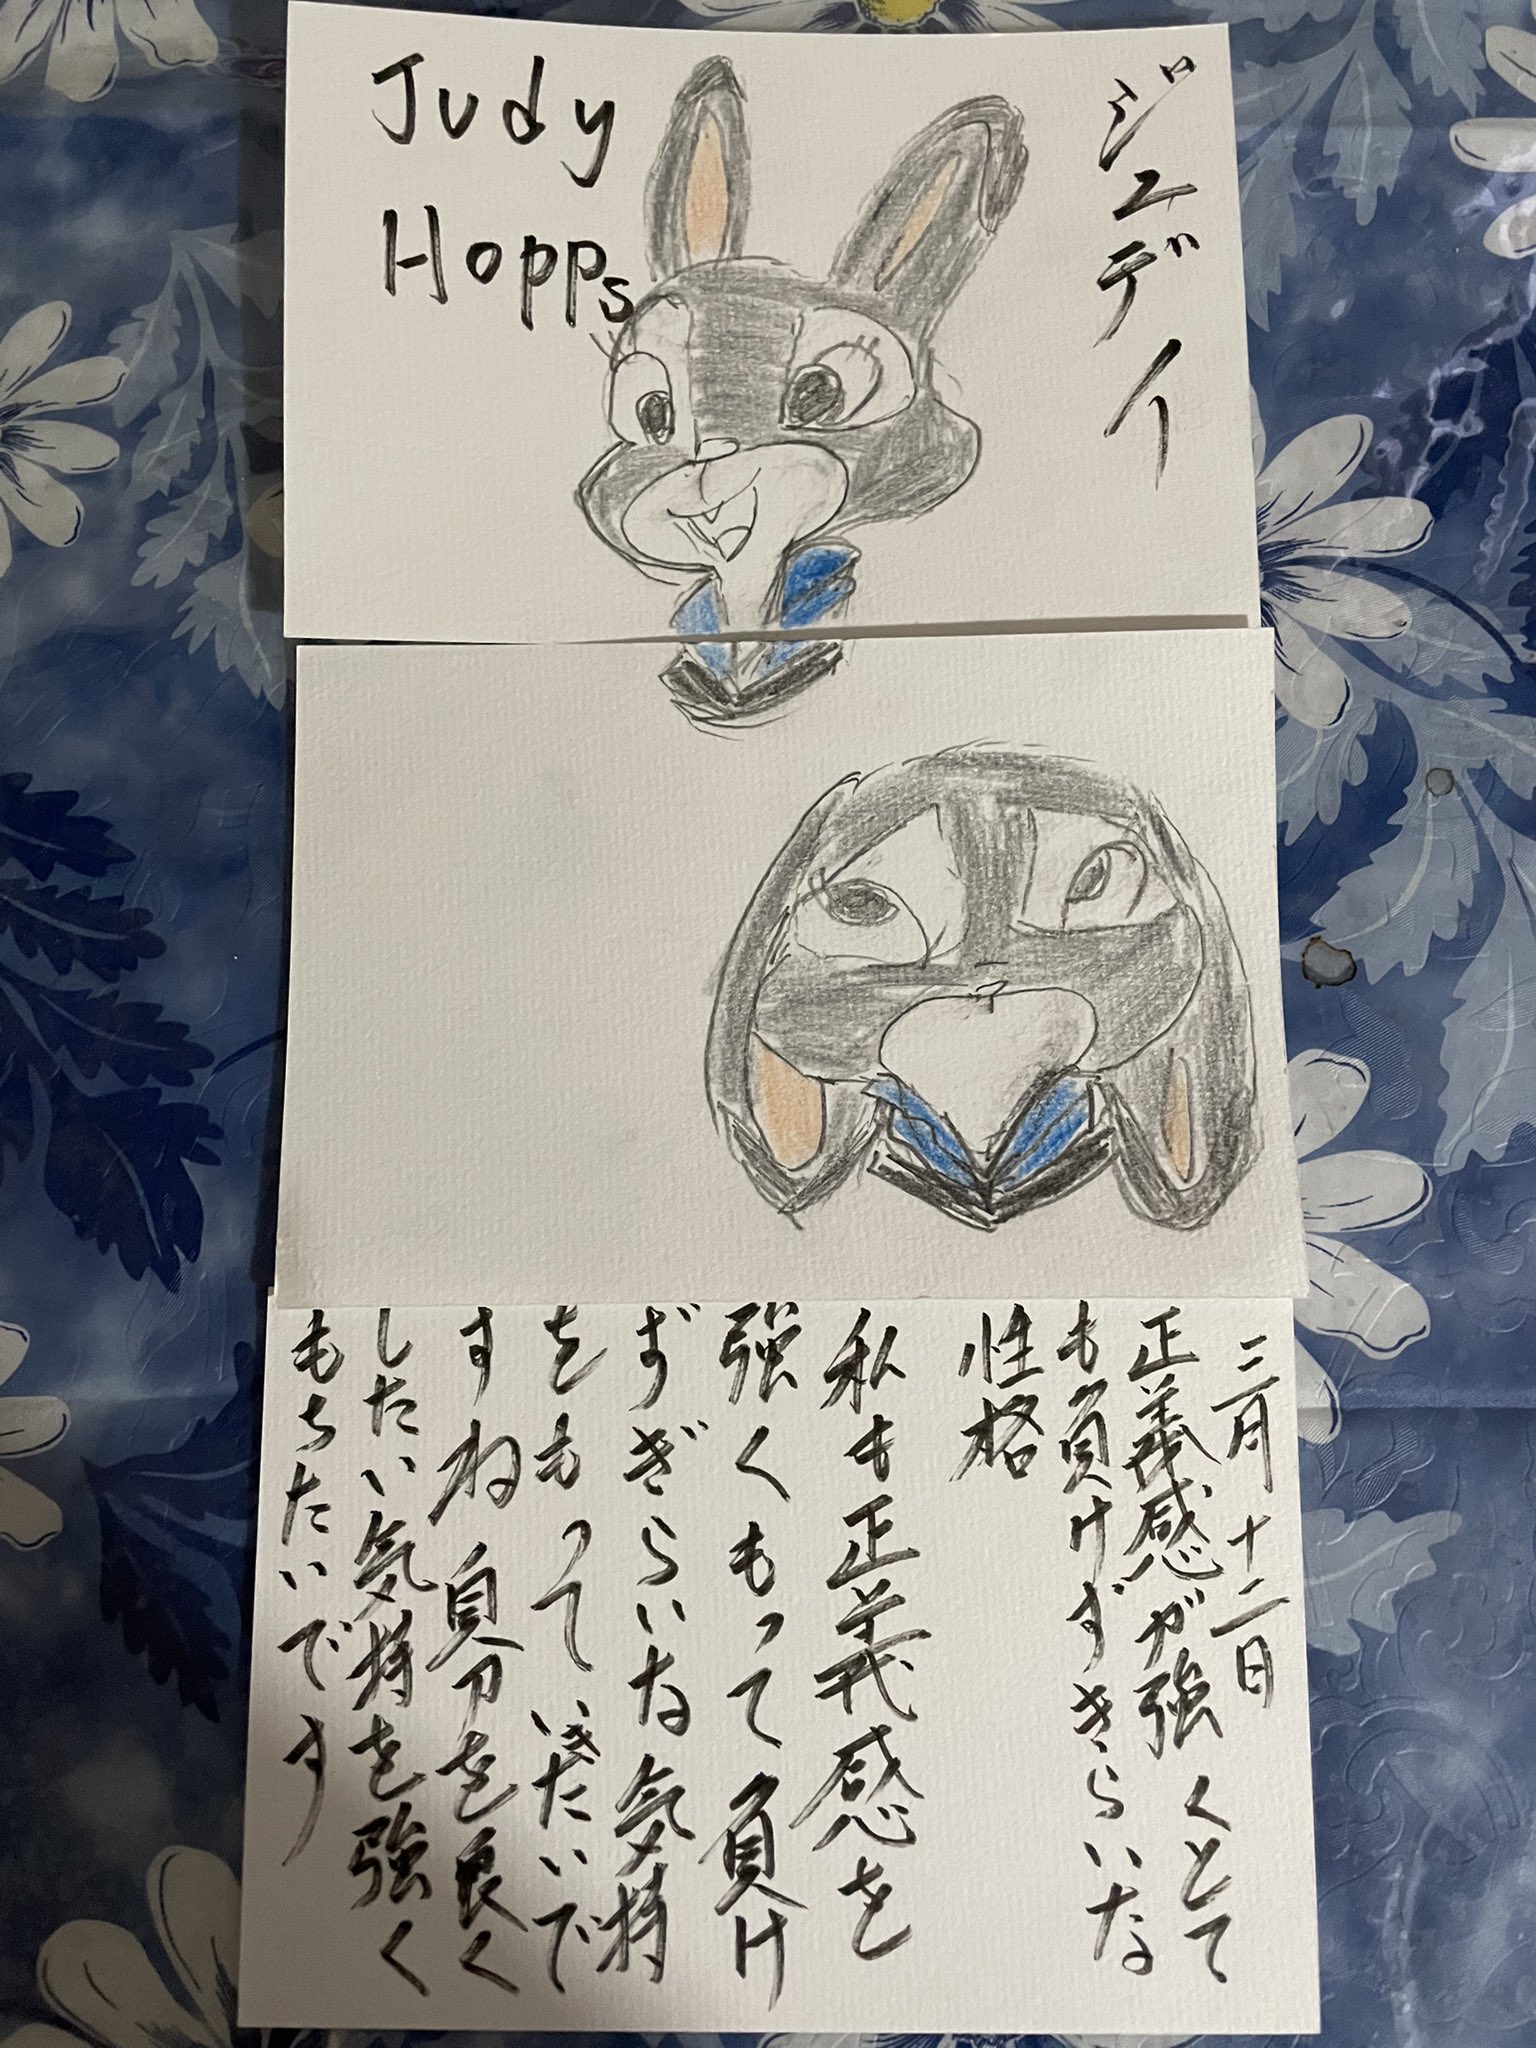 Judy
Hopps
ジュディ
三月十二日
正義感が強くとて
も負けずきらいな
性格
私も正義感を
強くもって負け
ずぎらいな気持
をもっていきたいで
すね自分を良く
したい気持を強く
もちたいです